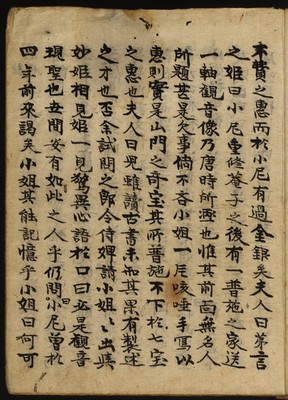 不貲之惠而於小尼有過金銀矣夫人曰第言
之姬曰小尼重修菴子之後有一普施之家送
一軸觀音像乃唐時所畵也惟其前面無名人
所題甚是欠事倘不吝小姐一尼咳唾手寫以
惠則實是山門之奇宝其所普施不下於七宝
之惠也夫人曰兒雖讀古書未知其果有製述
之才也否余試問之卽令侍婢請小姐小姐出與
妙姬相見姬一見驚異心語於口曰五是觀音
現聖也丑間安有如此之人乎仍問小尼曾於
四年前來謁矣小姐其能記憶乎小姐曰何可